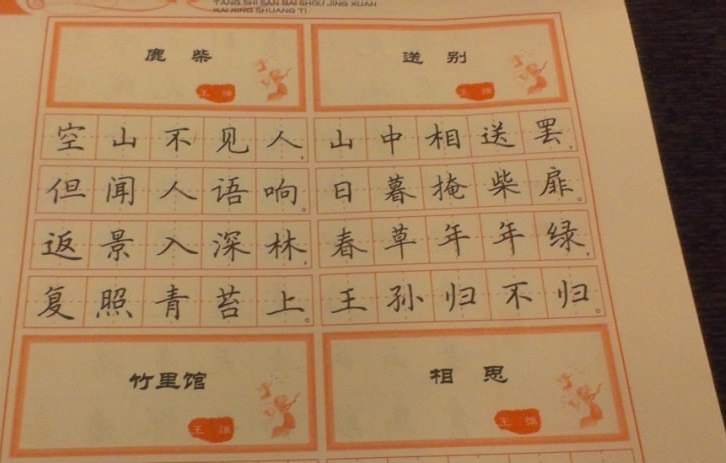 TANG SHI SAN BAI SHOU JING XUAN
KAI XING SHUANG TI
鹿柴
王维
空山不见人,
但闻人语响。
返景入深林,
复照青苔上。
送别
王维
山中相送罢,
日暮掩柴扉。
春草年年绿,
王孙归不归。
竹里馆
王维
相思
王维